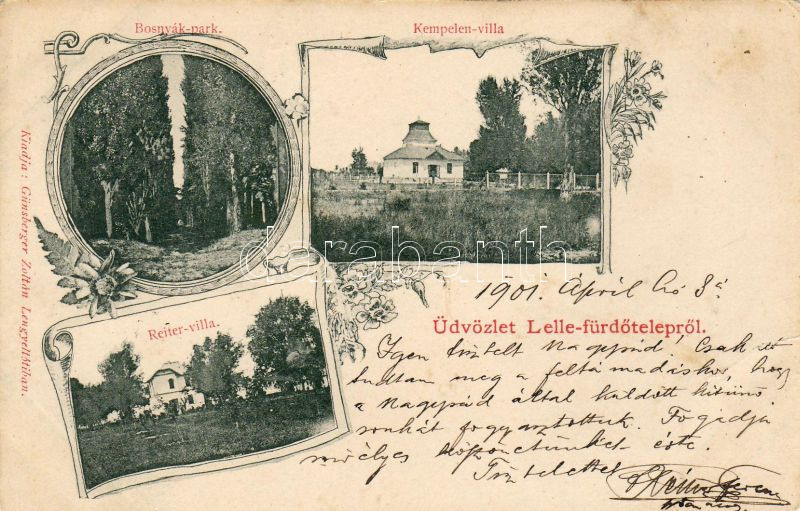 Bosnyák-park.
Kempelen-villa
Kiadja: Günsberger Zoltán Lengyeltótiban.
darabanth.com
Reiter-villa.
1901. Április hó 8á
Üdvözlet Lelle-fürdőtelepről.
Igen tisztelt Nagypád! Csak itt
tudtam meg a feltámadáskor, hogy
a Nagypád által küldött kitünő
sonkát fogyasztottuk. Fogadja
személyes köszönetünket érte.
Tisztelettel
Ferenc